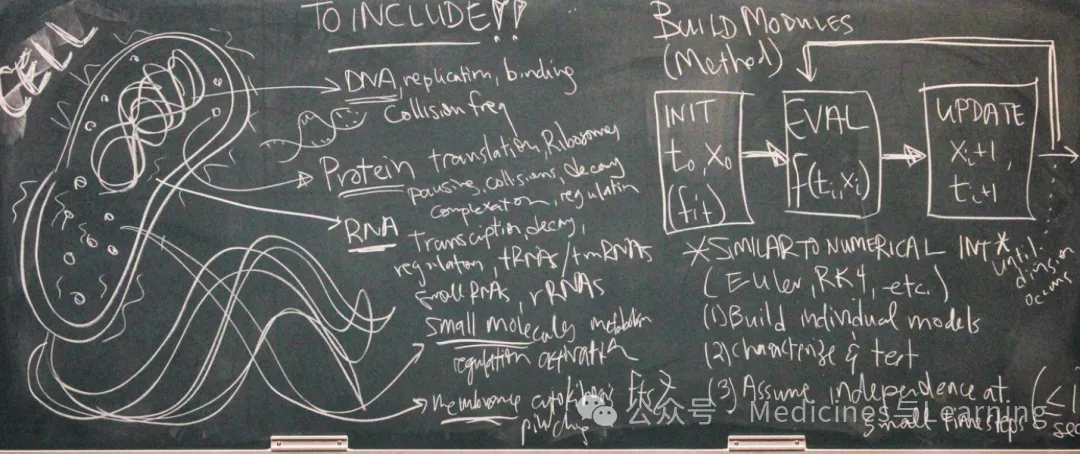 CELL
TO INCLUDE!!
DNA, replication, binding
Collision freq
Protein translation, Ribosomes
pausing, collisions, decay
complexation, regulation
RNA transcription, decay,
regulation, tRNAs/tmRNAs
small RNAs, rRNAs
Small molecules metabolism
regulation activation
Membrane cytokinesis FtsZ
pinching
BUILD MODULES
(Method)
INIT
t₀, x₀
(fit)
EVAL
f(tᵢ, xᵢ)
UPDATE
xᵢ+1,
tᵢ+1
until
division
occurs
*SIMILAR TO NUMERICAL INT*
(Euler, RK4, etc.)
(1) Build individual models
(2) Characterize & test
(3) Assume independence at
small timesteps (<1
sec
公众号 Medicines与Learning